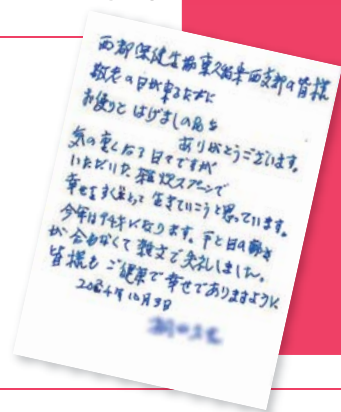 西都保健生協東久留米西支部の皆様
敬老の日が来るたびに
お便りと はげましの品を
ありがとうございます。
気の重くなる日々ですが
いただいた 雑炊スプーンで
幸せをすくとって 生きていこうと思っています。
今年は94才になります。手と目の動き
が合わなくて雑文で失礼しました。
皆様も ご健康で幸せでありますように
2024年10月3日